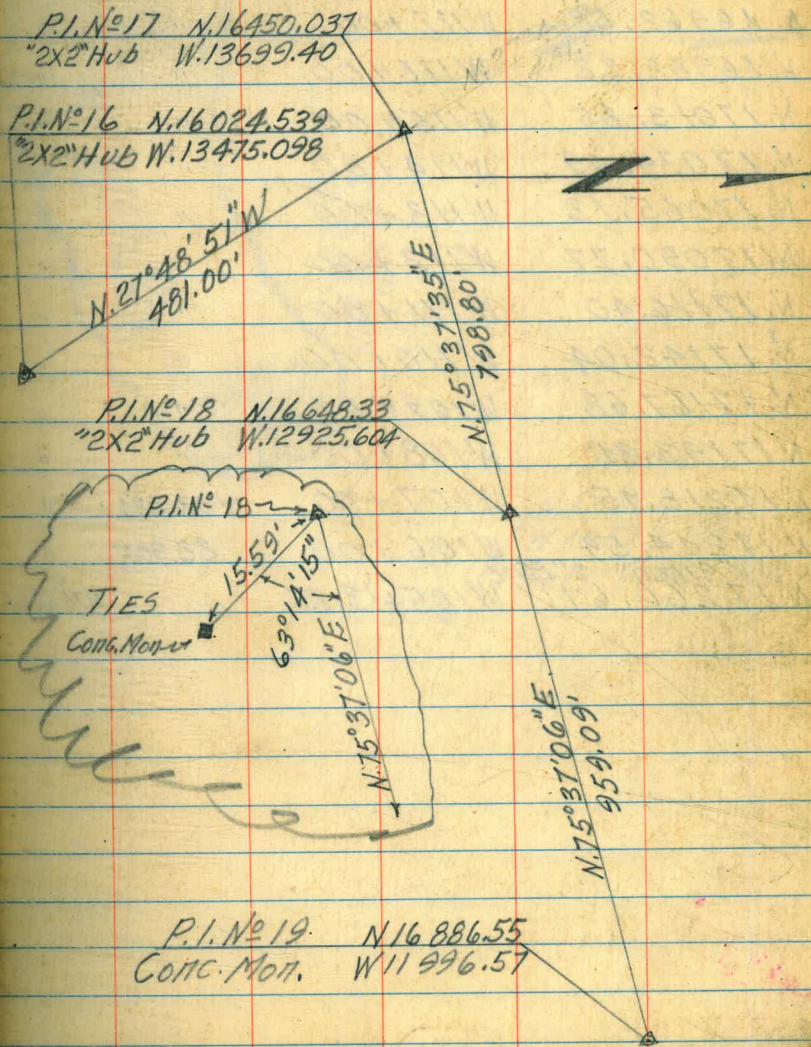 P.I.Nº17 N.16450.037
"2X2"Hub W.13699.40
P.I.Nº16 N.16024.539
"2X2"Hub W.13475.098
N
N.27°48'51"W
481.00'
N.75°37'35"E
798.80'
P.I.Nº18 N.16648.33
"2X2"Hub W.12925.604
P.I.Nº 18
15.59'
63°14'15"
TIES
Conc.Mon
N.75°37'06"E
N.75°37'06"E
959.09'
P.I.Nº19 N16886.55
Conc.Mon. W11996.57